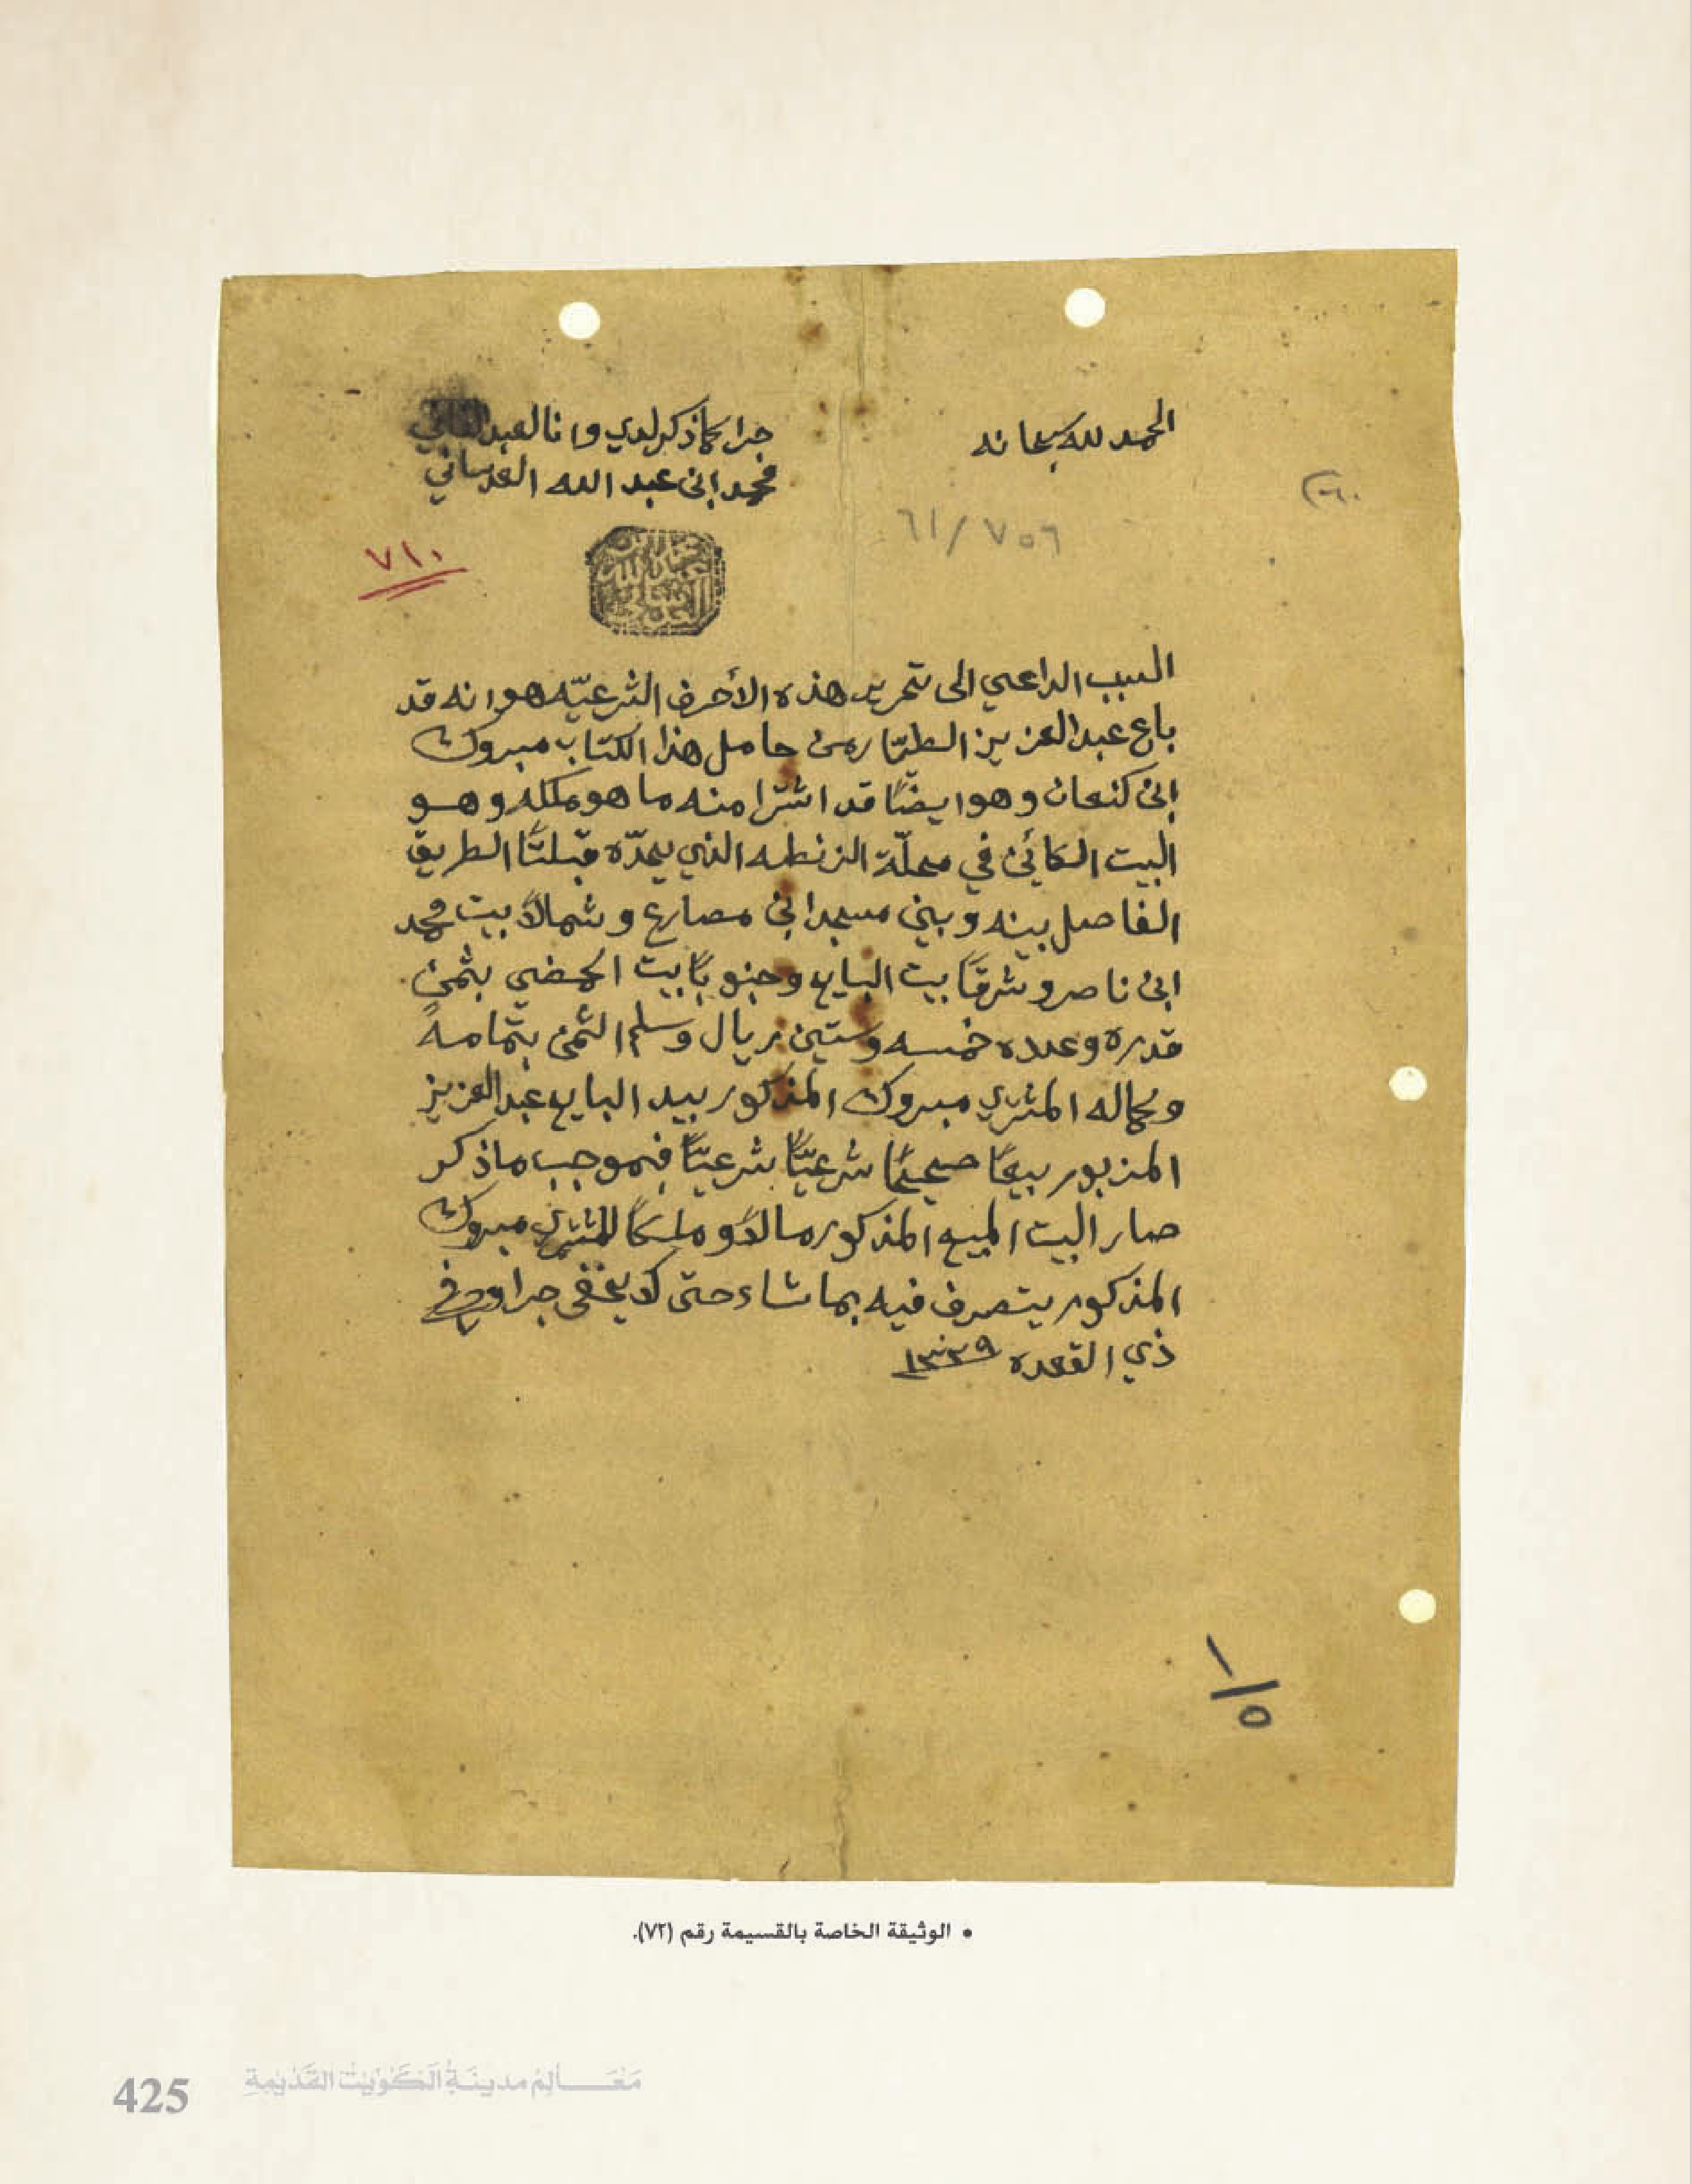 الحمد لله سبحانه
جرا كما ذكر لدي وانا العبد الفاني
محمد ابن عبد الله العدساني
٢٠٦٠
٧٥٦/٦١
٧١٠
السبب الداعي الى تحرير هذه الأحرف الشرعيّه هو انه قد
باع عبد العزيز الطيّار من حامل هذا الكتاب مبروك
ابن كنعان وهو ايضًا قد اشترا منه ما هو ملكه وهو
البيت الكائن في محلّة الزنطه الذي يحدّه قبلتًا الطريق
الفاصل بينه وبين مسجد ابن مصارع وشمالاً بيت محمد
ابن ناصر وشرقًا بيت البايع وجنوبًا بيت الحمضي بثمن
قدره وعدده خمسه وستين ريال وسلم الثمن بتمامه
وكماله المشتري مبروك المذكور بيد البايع عبد العزيز
المزبور بيعًا صحيحًا شرعيًّا شرعيًّا فبموجب ما ذكر
صار البيت المبيع المذكور مالاً وملكًا للمشتري مبروك
المذكور يتصرف فيه بما شاء حتى لا يخفى جرا وحرر في
ذي القعدة ١٣٣٩
١/٥
• الوثيقة الخاصة بالقسيمة رقم (٧٢).
425 مَعَالِمُ مدينَةِ الكُوَيْت القَدِيمَةِ